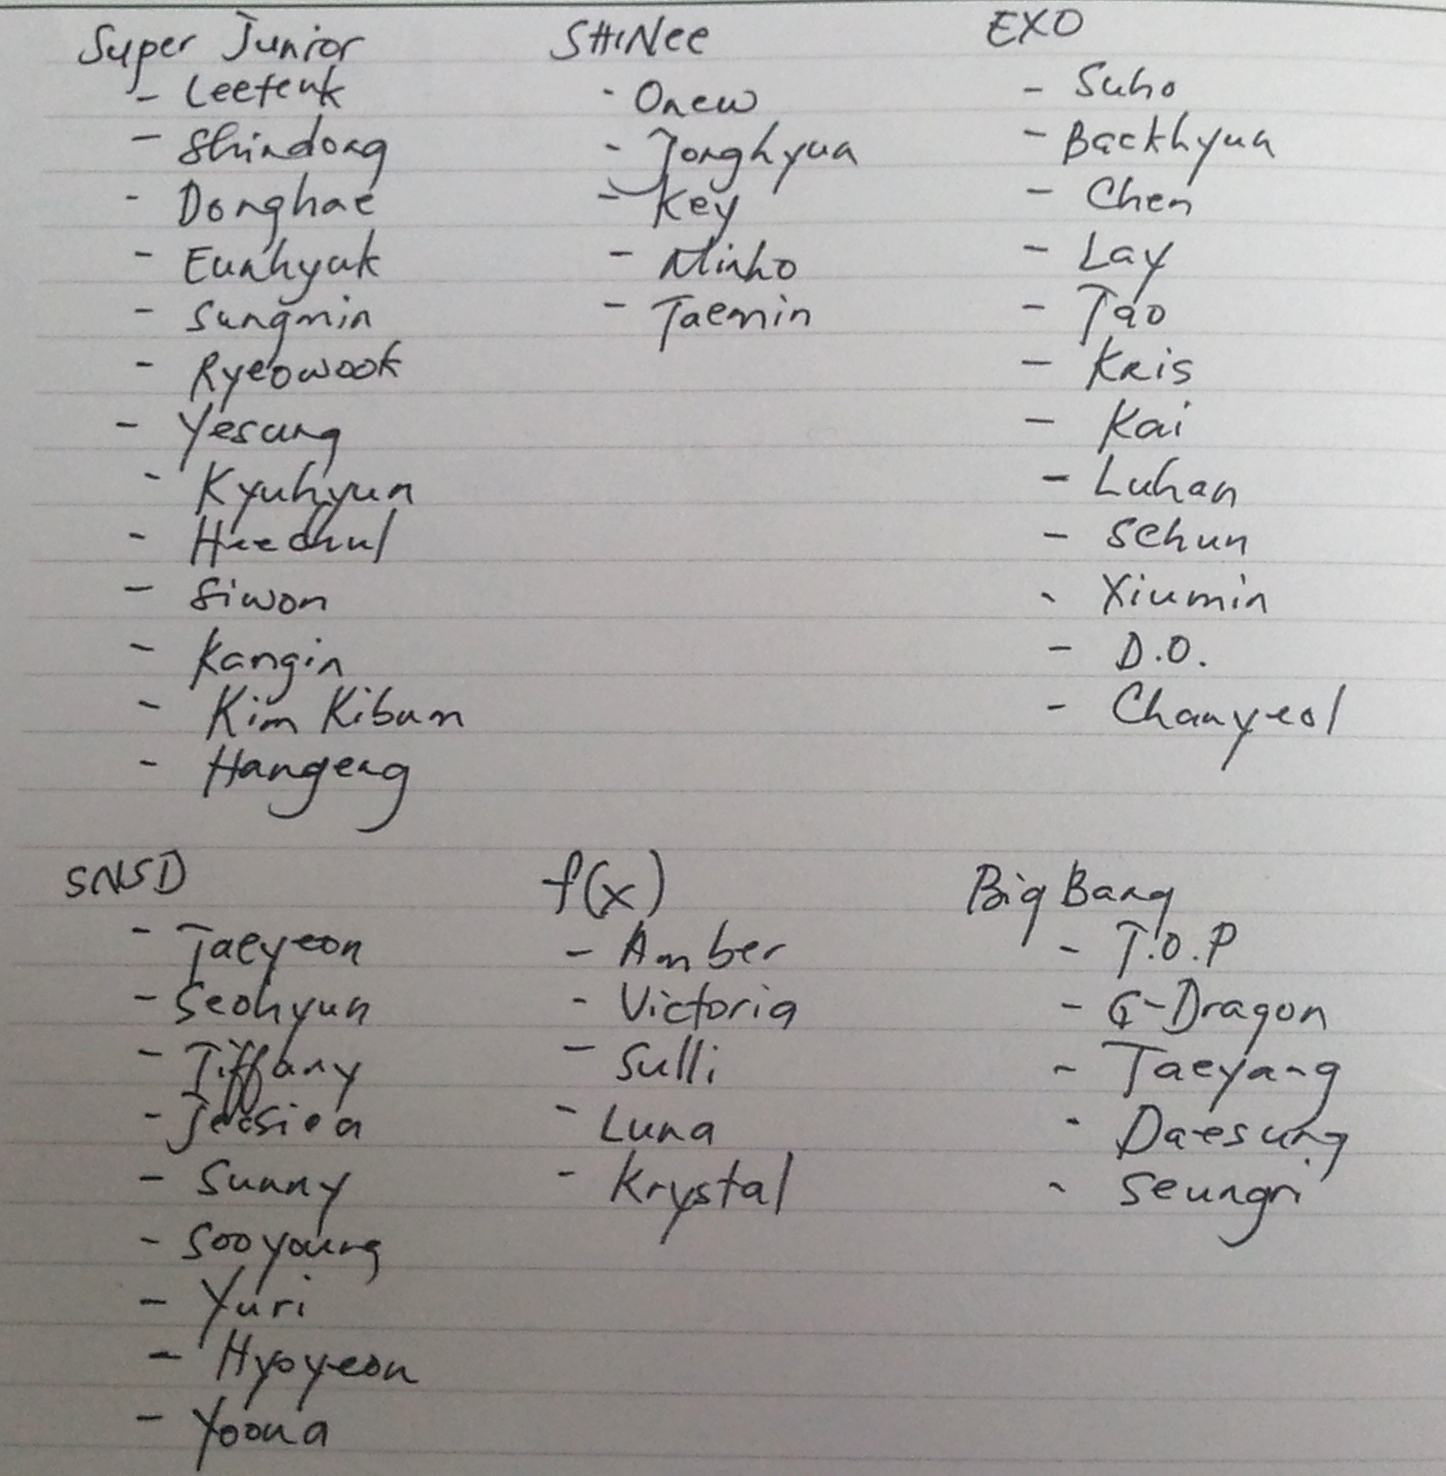 Super Junior
- Leeteuk
- Shindong
- Donghae
- Eunhyuk
- Sungmin
- Ryeowook
- Yesung
- Kyuhyun
- Heechul
- Siwon
- Kangin
- Kim Kibum
- Hangeng
SHINee
- Onew
- Jonghyun
- Key
- Minho
- Taemin
EXO
- Suho
- Baekhyun
- Chen
- Lay
- Tao
- Kris
- Kai
- Luhan
- Sehun
- Xiumin
- D.O.
- Chanyeol
SNSD
- Taeyeon
- Seohyun
- Tiffany
- Jessica
- Sunny
- Sooyoung
- Yuri
- Hyoyeon
- Yoona
f(x)
- Amber
- Victoria
- Sulli
- Luna
- Krystal
Big Bang
- T.O.P
- G-Dragon
- Taeyang
- Daesung
- Seungri